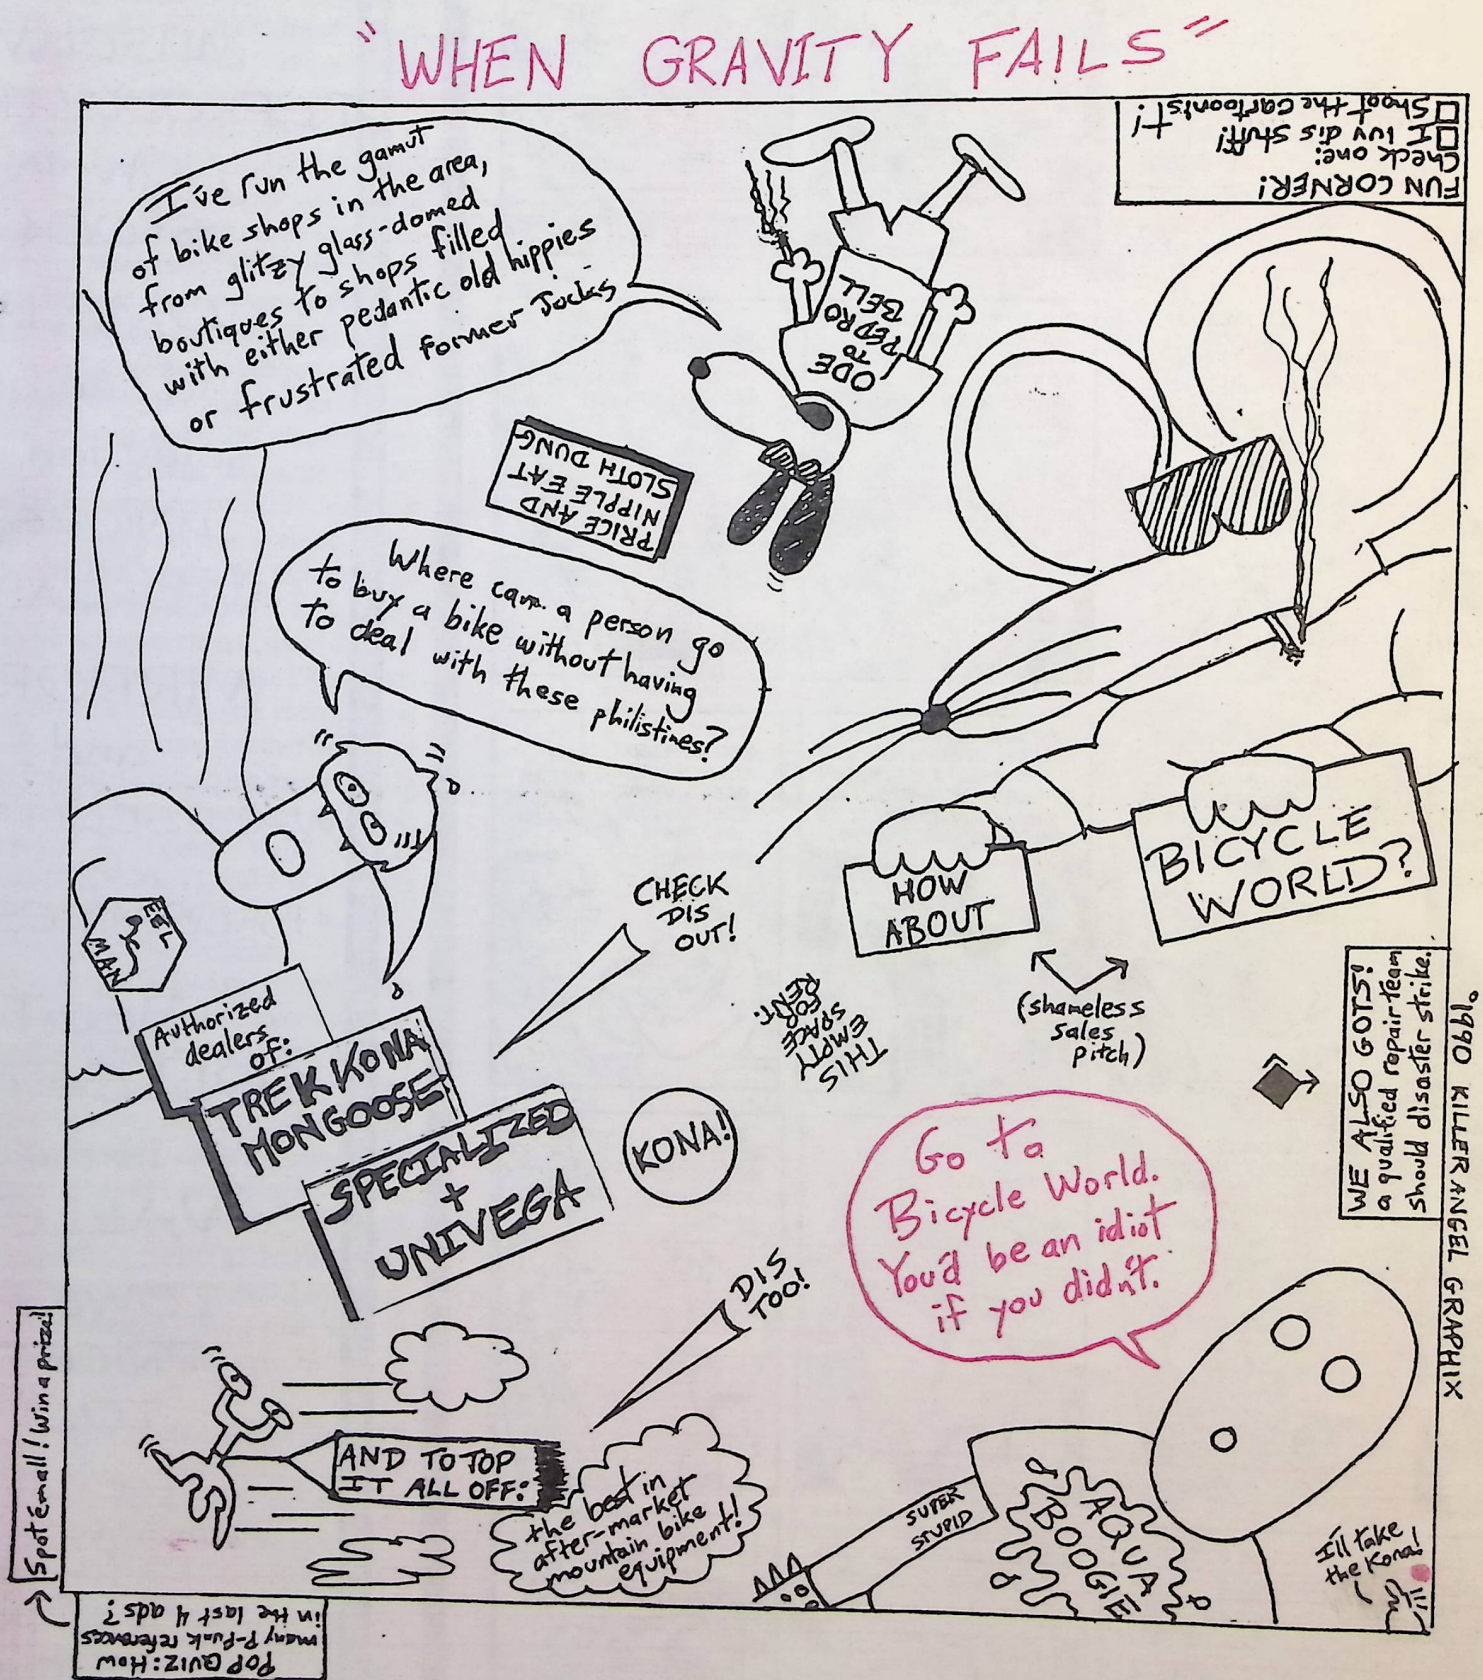 "WHEN GRAVITY FAILS"
FUN CORNER!
Check one:
I luv dis stuff!
Shoot the cartoonist!
I've run the gamut
of bike shops in the area,
from glitzy glass-domed
boutiques to shops filled
with either pedantic old hippies
or frustrated former Jocks
ODE
TO
PEDRO
BELL
PRICE AND
NIPPLE EAT
SLOTH DUNG
Where can a person go
to buy a bike without having
to deal with these philistines?
HOW
ABOUT
BICYCLE
WORLD?
(shameless
sales
pitch)
CHECK
DIS
OUT!
THIS
EMPTY
SPACE
FOR
RENT.
EEL
MAN
Authorized
dealers
of:
TREK KONA
MONGOOSE
SPECIALIZED
+
UNIVEGA
KONA!
WE ALSO GOTS!
a qualified repair team
should disaster strike.
Go to
Bicycle World.
You'd be an idiot
if you didn't.
DIS
TOO!
AND TO TOP
IT ALL OFF:
the best in
after-market
mountain bike
equipment!
SUPER
STUPID
AQUA
BOOGIE
I'll take
the Kona!
1990 KILLER ANGEL GRAPHIX
POP QUIZ: How
many P-Funk references
in the last 4 ads?
Spot 'em all! Win a prize!